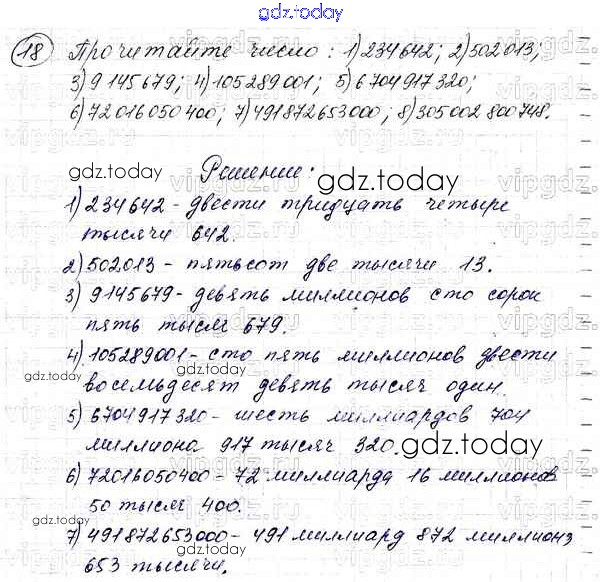 gdz.today
18 Прочитайте число: 1) 234642; 2) 502013;
3) 9145679; 4) 105289001; 5) 6704917320;
6) 72016050400; 7) 491872653000; 8) 305002800748.
Решение:
gdz.today
gdz.today
1) 234642 - двести тридцать четыре
тысячи 642.
gdz.today
2) 502013 - пятьсот две тысячи 13.
3) 9145679 - девять миллионов сто сорок
пять тысяч 679.
gdz.today
4) 105289001 - сто пять миллионов двести
gdz.today
восемьдесят девять тысяч один.
5) 6704917320 - шесть миллиардов 704
миллиона 917 тысяч 320.
gdz.today
6) 72016050400 - 72 миллиарда 16 миллионов
50 тысяч 400.
gdz.today
7) 491872653000 - 491 миллиард 872 миллиона
653 тысячи.
gdz.today